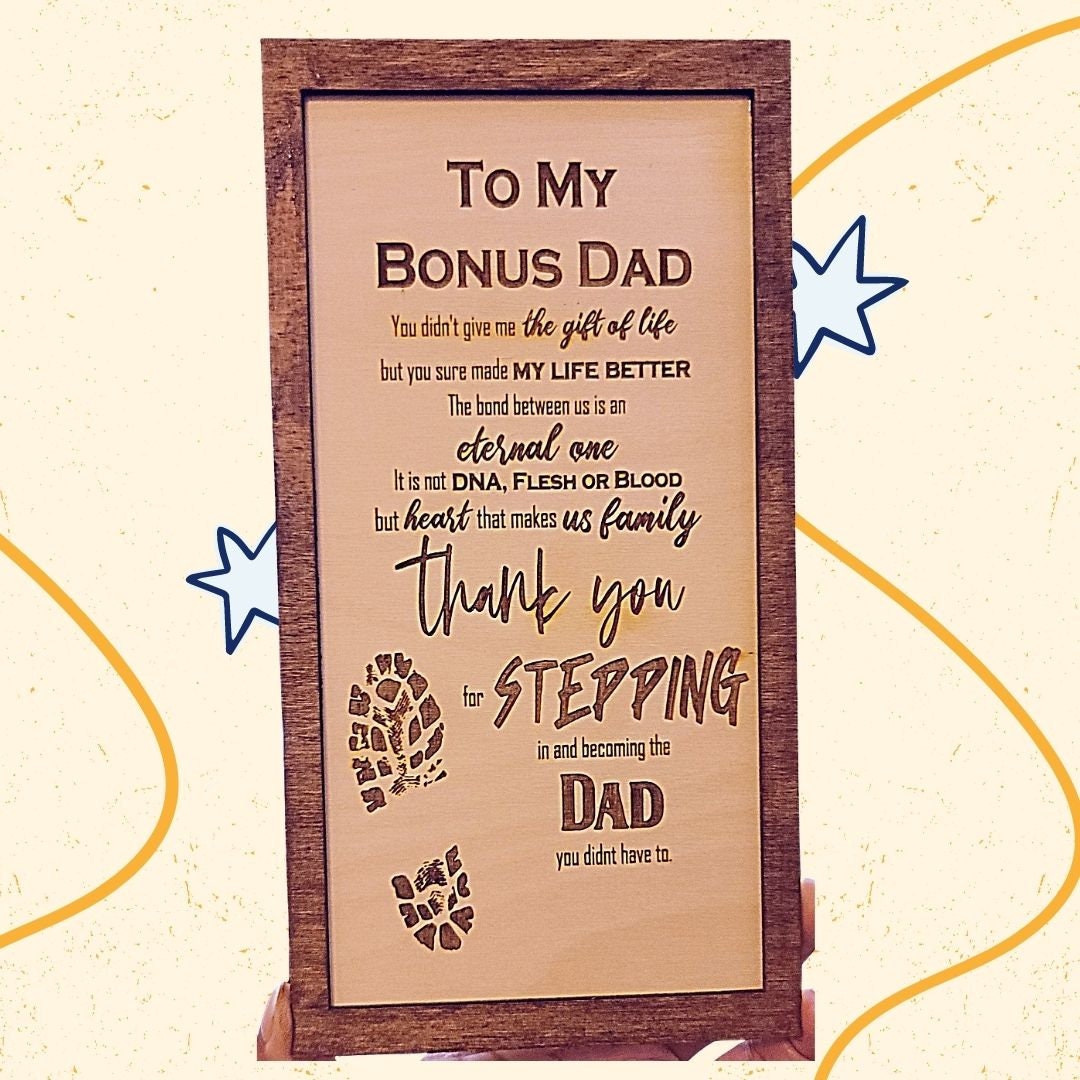 To My
Bonus Dad
You didn't give me the gift of life
but you sure made MY LIFE BETTER
The bond between us is an
eternal one
It is not DNA, Flesh or Blood
but heart that makes us family
thank you
for STEPPING
in and becoming the
DAD
you didnt have to.